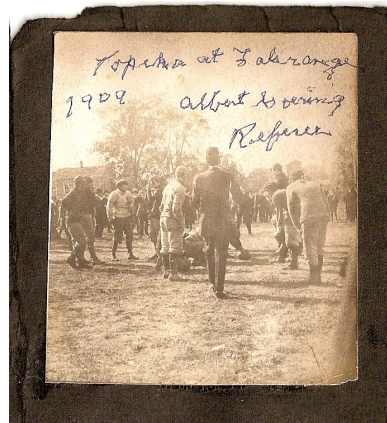 Topeka at LaGrange
1909 Albert Goering
Referee